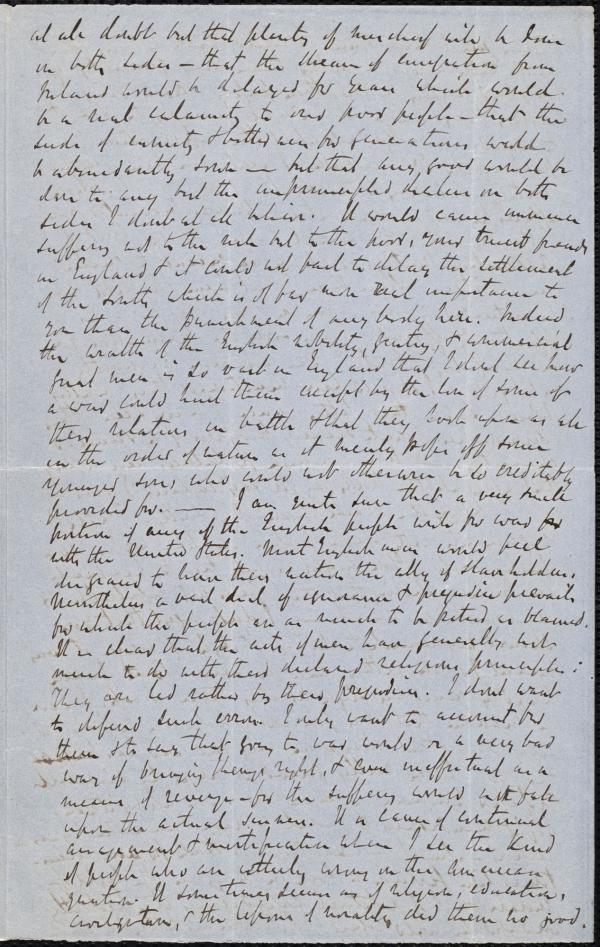 at all doubt but that plenty of mischief will be done
on both sides — that the stream of emigration from
Ireland would be delayed for years which would
be a real calamity to our poor people — that the
seeds of enmity & bitterness for generations would
be abundantly sown — but that any good would be
done to any but the unprincipled dealers on both
sides I don't at all believe. It would cause immense
suffering not to the rich but to the poor, your truest friends
in England & it could not fail to delay the settlement
of the South, which is of far more real importance to
you than the punishment of any body here. Indeed
the wealth of the English nobility, gentry, & commercial
great men is so vast in England that I don't see how
a war could hurt them except by the loss of some of
their relations in battle & that they look upon as all
in the order of nature as it merely pops off some
younger sons who could not otherwise be so creditably
provided for. — I am quite sure that a very small
portion if any of the English people wish for war
with the United States. Most English men would feel
disgraced to have their nation the ally of slaveholders.
Nevertheless a vast deal of ignorance & prejudice prevails
for which the people are as much to be pitied as blamed.
It is clear that the acts of men have generally not
much to do with their declared religious principles:
They are led rather by their prejudices. I don't want
to defend such errors. I only want to account for
them & to say that going to war would be a very bad
way of bringing things right, & even ineffectual as a
means of revenge — for the suffering would not fall
upon the actual sinners. It is cause of continual
amazement & mortification when I see the kind
of people who are utterly wrong on the American
question. It sometimes seems as if religion, education,
civilization, & the lessons of morality did them no good.